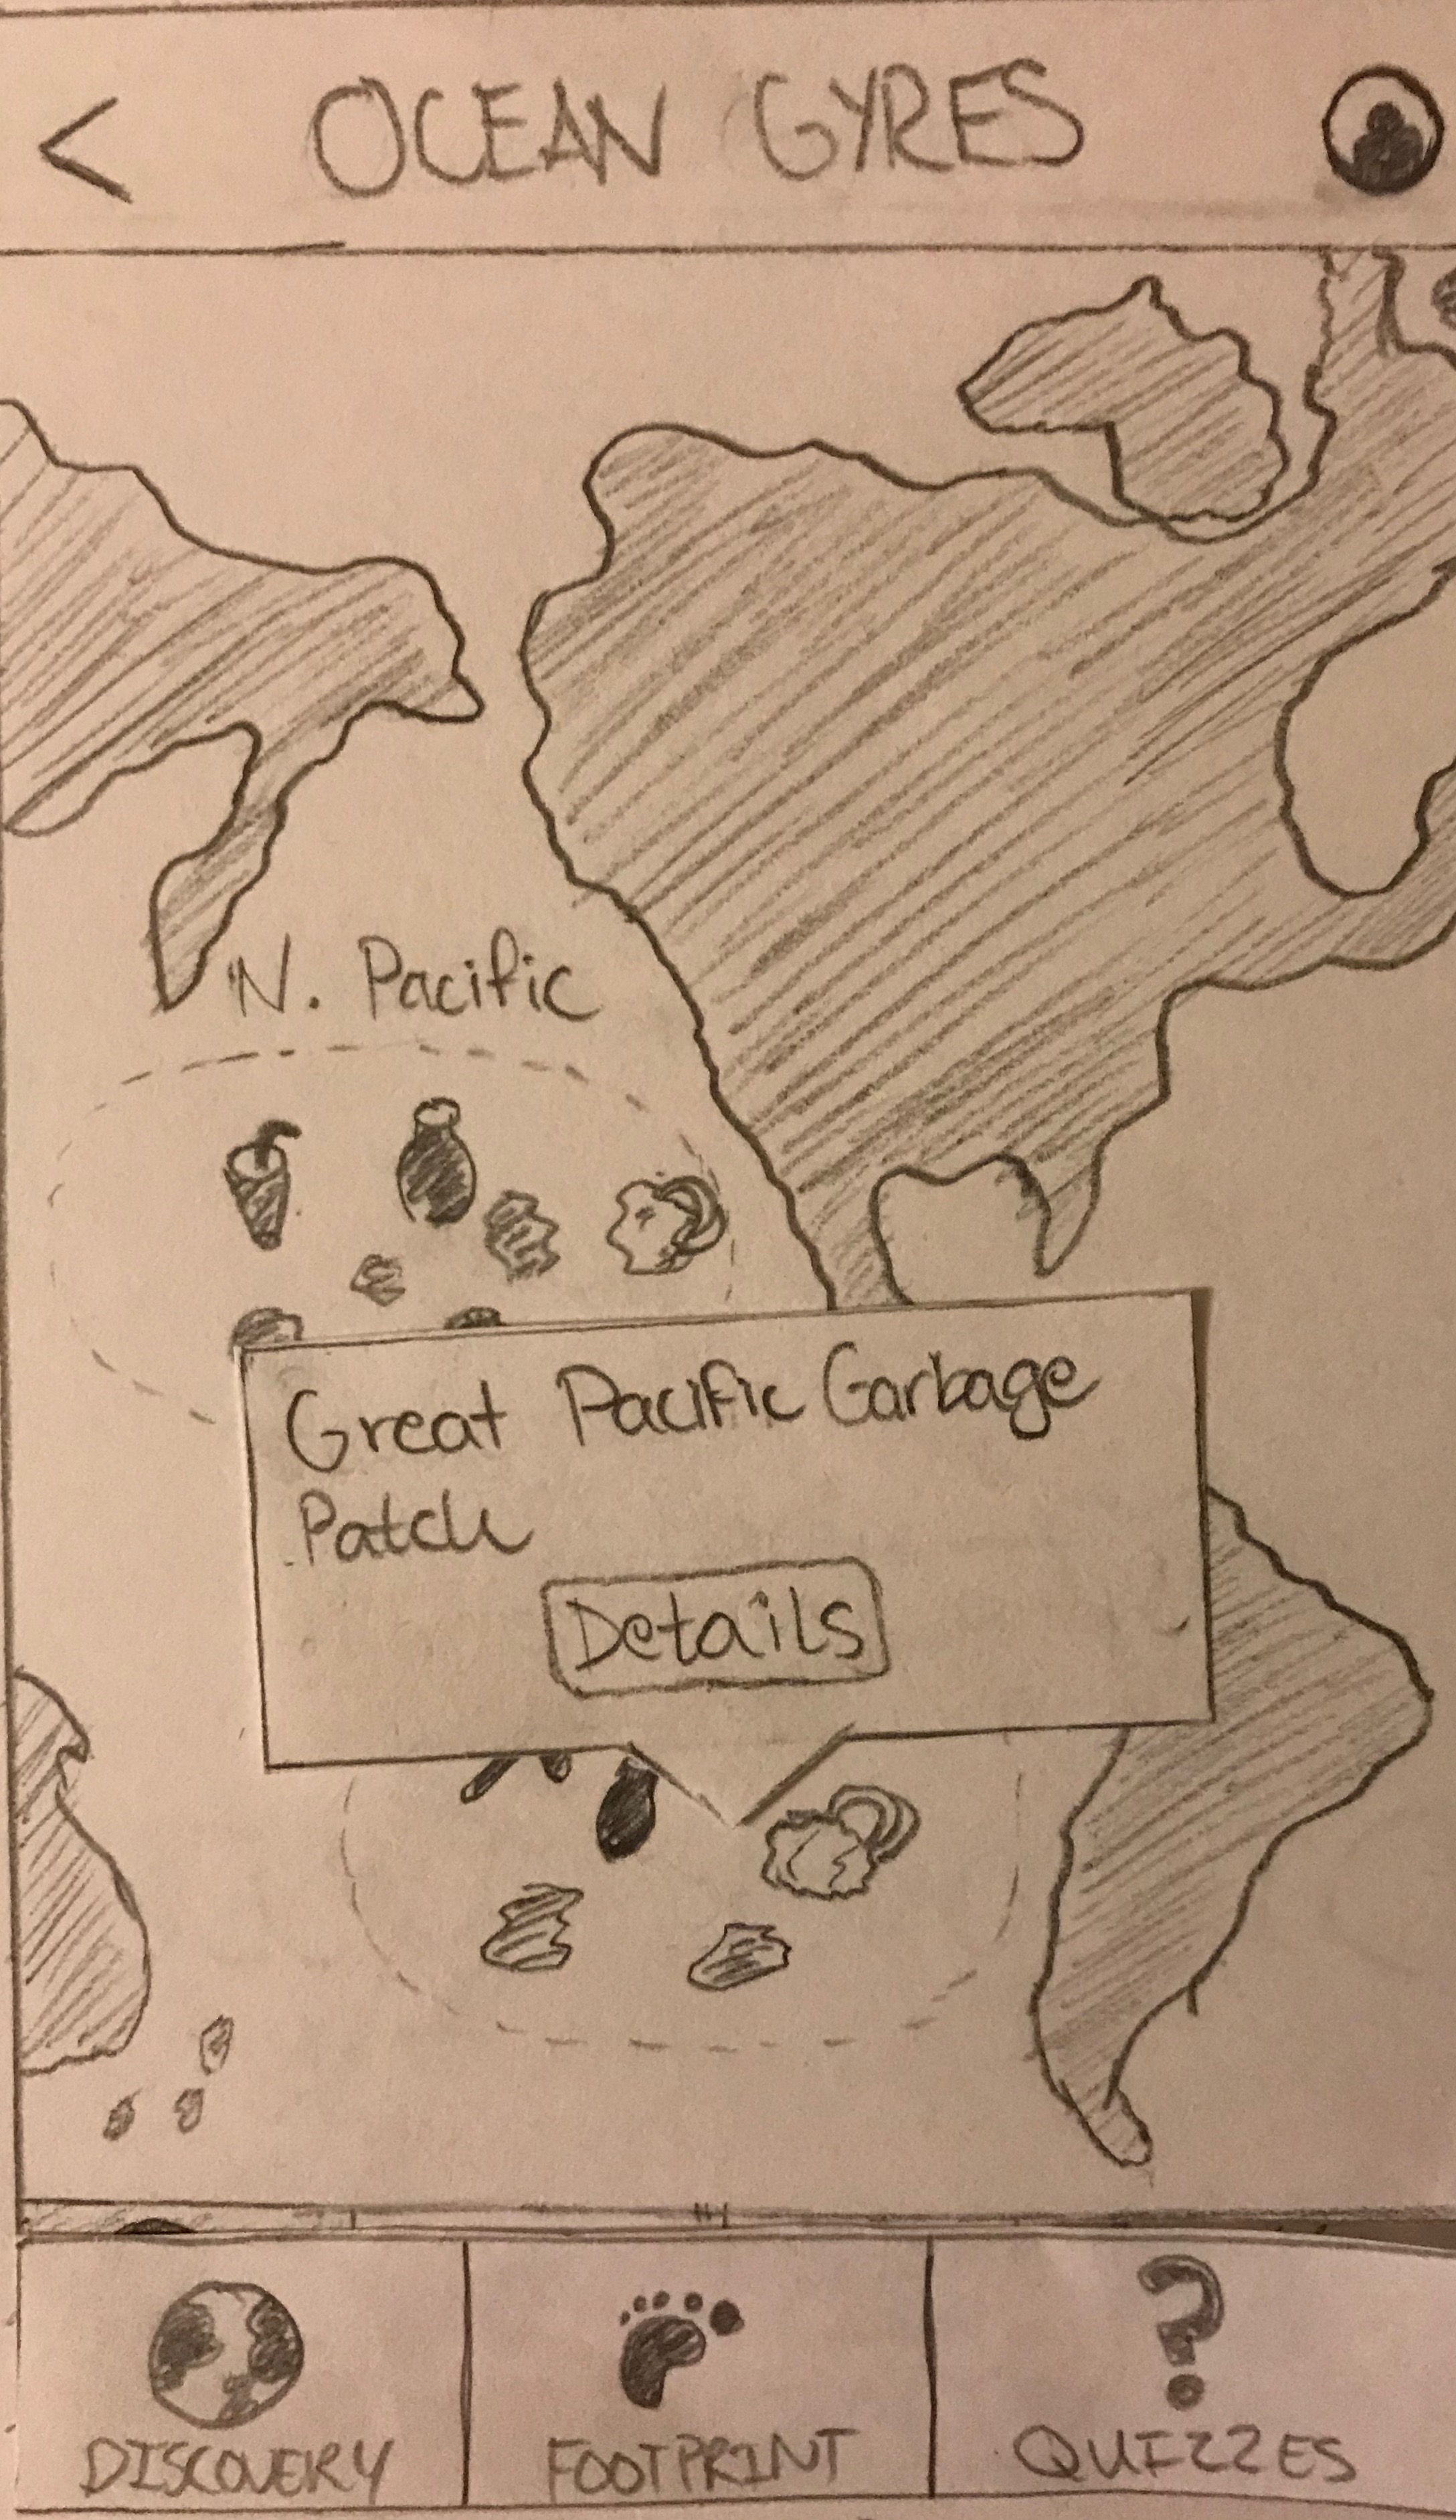 < OCEAN GYRES
N. Pacific
Great Pacific Garbage
Patch
Details
?
DISCOVERY
FOOTPRINT
QUIZZES